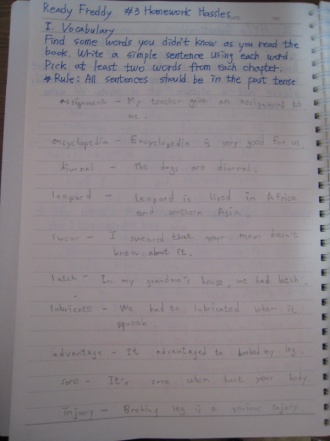 Ready Freddy #3 Homework Hassles
I. Vocabulary
Find some words you didn't know as you read the
book. Write a simple sentence using each word.
Pick at least two words from each chapter.
* Rule: All sentences should be in the past tense
assignment - My teacher give an assignment to
us.
encyclopedia - Encyclopedia is very good for us.
diurnal - The dogs are diurnal.
leopard - leopard is lived in Africa
and western Asia.
swear - I sweared that your mom hasn't
known about it.
latch - In my grandma's house, we had latch.
lubricate - We had to lubricated when it
squeak.
advantage - It advantaged to my leg.
sore - It's sore when hurt your body.
injury - Broking leg is a serious injury